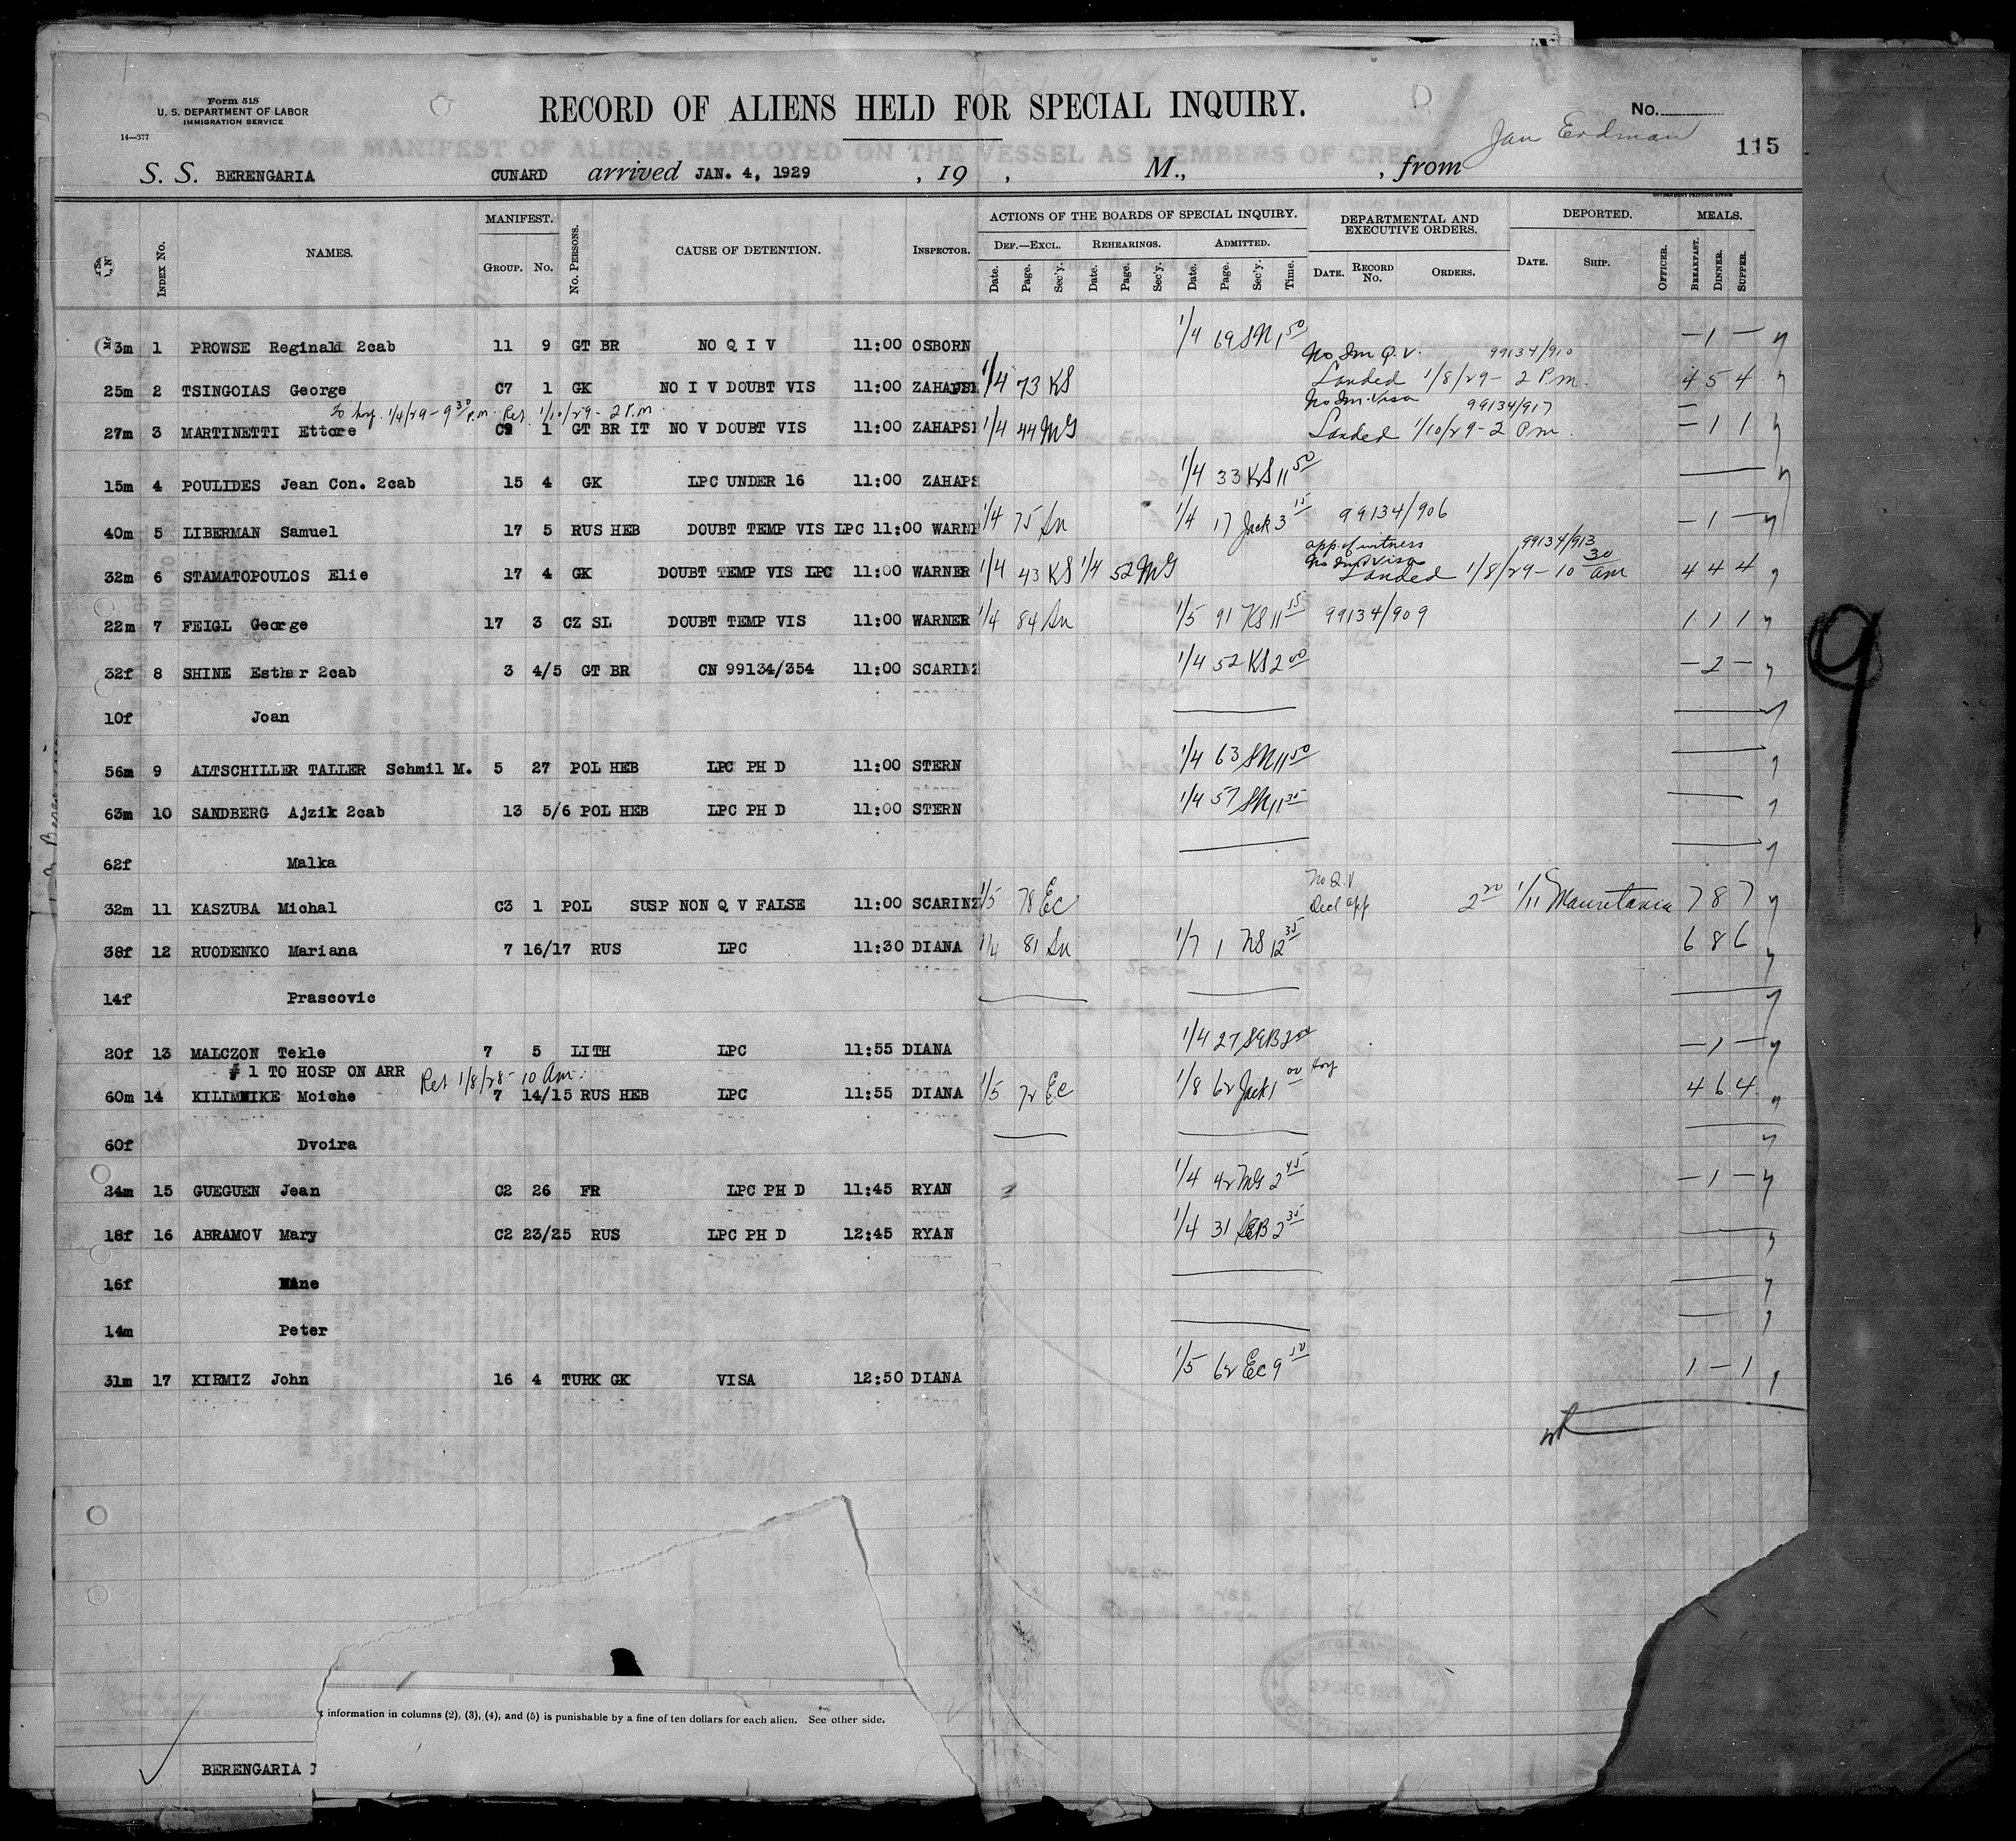 Form 518
U. S. DEPARTMENT OF LABOR
IMMIGRATION SERVICE
14—577
RECORD OF ALIENS HELD FOR SPECIAL INQUIRY.
No.
115
S. S. BERENGARIA CUNARD arrived JAN. 4, 1929 , 19 , M., , from
GOVERNMENT PRINTING OFFICE
Index No. NAMES. MANIFEST. Group. No. No. Persons. CAUSE OF DETENTION. INSPECTOR. ACTIONS OF THE BOARDS OF SPECIAL INQUIRY. DEF.—EXCL. Date. Page. Sec'y. REHEARINGS. Date. Page. Sec'y. ADMITTED. Date. Page. Sec'y. Time. DEPARTMENTAL AND EXECUTIVE ORDERS. DATE. RECORD No. ORDERS. DEPORTED. DATE. SHIP. OFFICER. MEALS. BREAKFAST. DINNER. SUPPER.
3m 1 PROWSE Reginald 2cab 11 9 GT BR NO Q I V 11:00 OSBORN 1/4 69 SN 1 50 — 1 —
No Im Q.V. 99134/910
25m 2 TSINGOIAS George C7 1 GK NO I V DOUBT VIS 11:00 1/4 73 KS Landed 1/8/29 - 2 P.m. 4 5 4
To hosp. 1/4/29 - 9 30 P.m. Ret. 1/10/29 - 2 P.m. No Im. Visa 99134/917
27m 3 MARTINETTI Ettore 1 GT BR IT NO V DOUBT VIS 11:00 ZAHAPSI 1/4 44 MG Landed 1/10/29 - 2 P.m. — 1 1
15m 4 POULIDES Jean Con. 2cab 15 4 GK LPC UNDER 16 11:00 ZAHAPS 1/4 33 KS 11 50
40m 5 LIBERMAN Samuel 17 5 RUS HEB DOUBT TEMP VIS LPC 11:00 WARNE 1/4 75 Sn 1/4 17 Jack 3 15 99134/906 — 1 —
app. of witness 99134/913
32m 6 STAMATOPOULOS Elie 17 4 GK DOUBT TEMP VIS LPC 11:00 WARNER 1/4 43 KS 1/4 52 MG Landed 1/8/29 - 10 30 am 4 4 4
22m 7 FEIGL George 17 3 CZ SL DOUBT TEMP VIS 11:00 WARNER 1/4 84 Sn 1/5 91 KS 11 15 99134/909 1 1 1
32f 8 SHINE Esther 2cab 3 4/5 GT BR CN 99134/354 11:00 SCARINZ 1/4 52 KS 2 00 — 2 —
10f Joan
56m 9 ALTSCHILLER TALLER Schmil M. 5 27 POL HEB LPC PH D 11:00 STERN 1/4 63 SN 11 50
63m 10 SANDBERG Ajzik 2cab 13 5/6 POL HEB LPC PH D 11:00 STERN 1/4 57 SN 11 35
62f Malka
No Q.V
32m 11 KASZUBA Michal C3 1 POL SUSP NON Q V FALSE 11:00 SCARINZ 1/5 78 Ec Decl app 2 20 1/11 Mauretania 7 8 7
38f 12 RUODENKO Mariana 7 16/17 RUS LPC 11:30 DIANA 1/4 81 Sn 1/7 1 NS 12 35 6 8 6
14f Prascovic
20f 13 MALCZON Tekle 7 5 LITH LPC 11:55 DIANA 1/4 27 SEB 2 00 — 1 —
# 1 TO HOSP ON ARR Ret 1/8/28 - 10 Am.
60m 14 KILIMNIKE Moiche 7 14/15 RUS HEB LPC 11:55 DIANA 1/5 72 Ec 1/8 62 Jack 1 00 4 6 4
60f Dvoira
24m 15 GUEGUEN Jean C2 26 FR LPC PH D 11:45 RYAN 1/4 42 MG 2 45 — 1 —
18f 16 ABRAMOV Mary C2 23/25 RUS LPC PH D 12:45 RYAN 1/4 31 SEB 2 35
16f
14m Peter
31m 17 KIRMIZ John 16 4 TURK GK VISA 12:50 DIANA 1/5 62 Ec 9 50 1 — 1
9
t information in columns (2), (3), (4), and (5) is punishable by a fine of ten dollars for each alien. See other side.
BERENGARIA